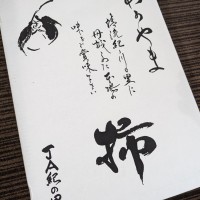 わかやま
清流紀ノ川の里に
丹誠こめた本場の
味をご賞味ください
柿
JA紀の里